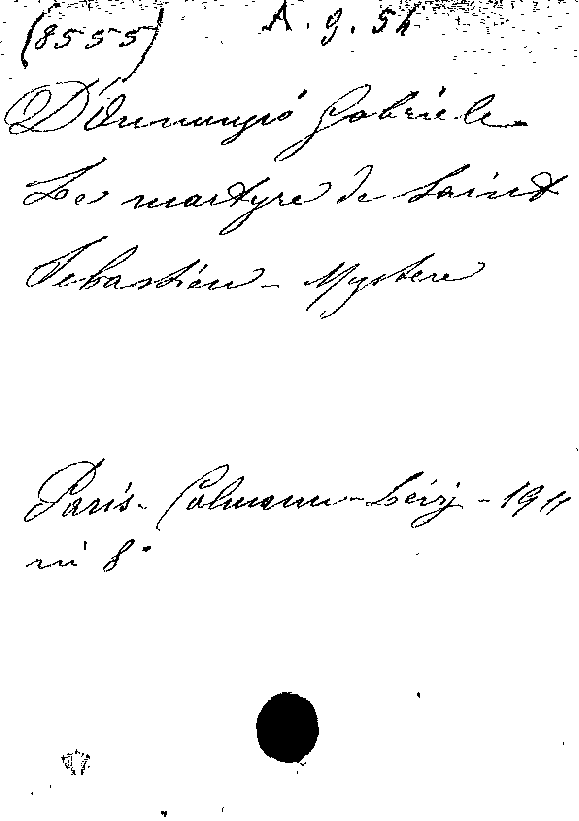 (8555) A. 9. 54
D'Annunzio Gabriele
Le martyre de Saint
Sébastien - Mystere
Paris - Calmann - Lévy - 1911
in 8°